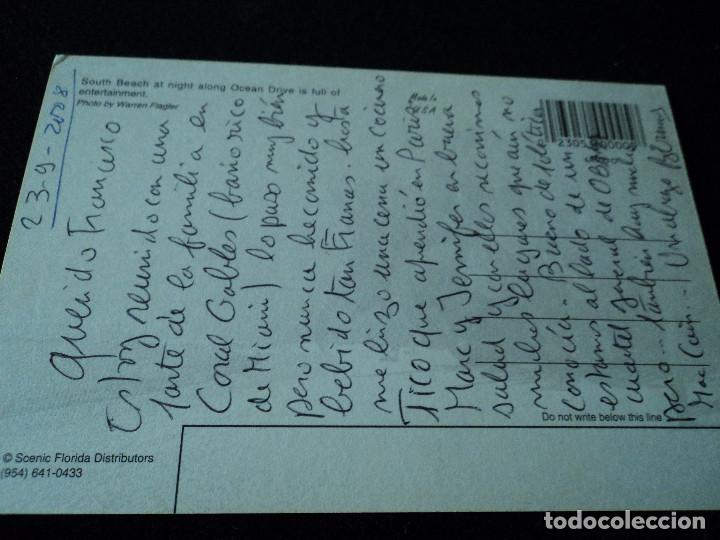 South Beach at night along Ocean Drive is full of
entertainment.
Photo by Warren Flagler
Made in
USA
23-9-2008
Querido Francisco
Estoy reunido con una
parte de la familia en
Coral Gables (barrio rico
de Miami) lo paso muy bien
pero nunca he comido y
bebido tan Frances hasta
me hizo una cena un cocinero
Tico que aprendió en Paris
Marc y Jennifer en buena
salud y con elles recorrimos
muchos lugares que aún no
conocía. Bueno de politica
estamos al lado de un
cuartel general de Obama
pero también hay mucho
Mac Cain... Un abrazo
Do not write below this line
© Scenic Florida Distributors
(954) 641-0433
todocoleccion